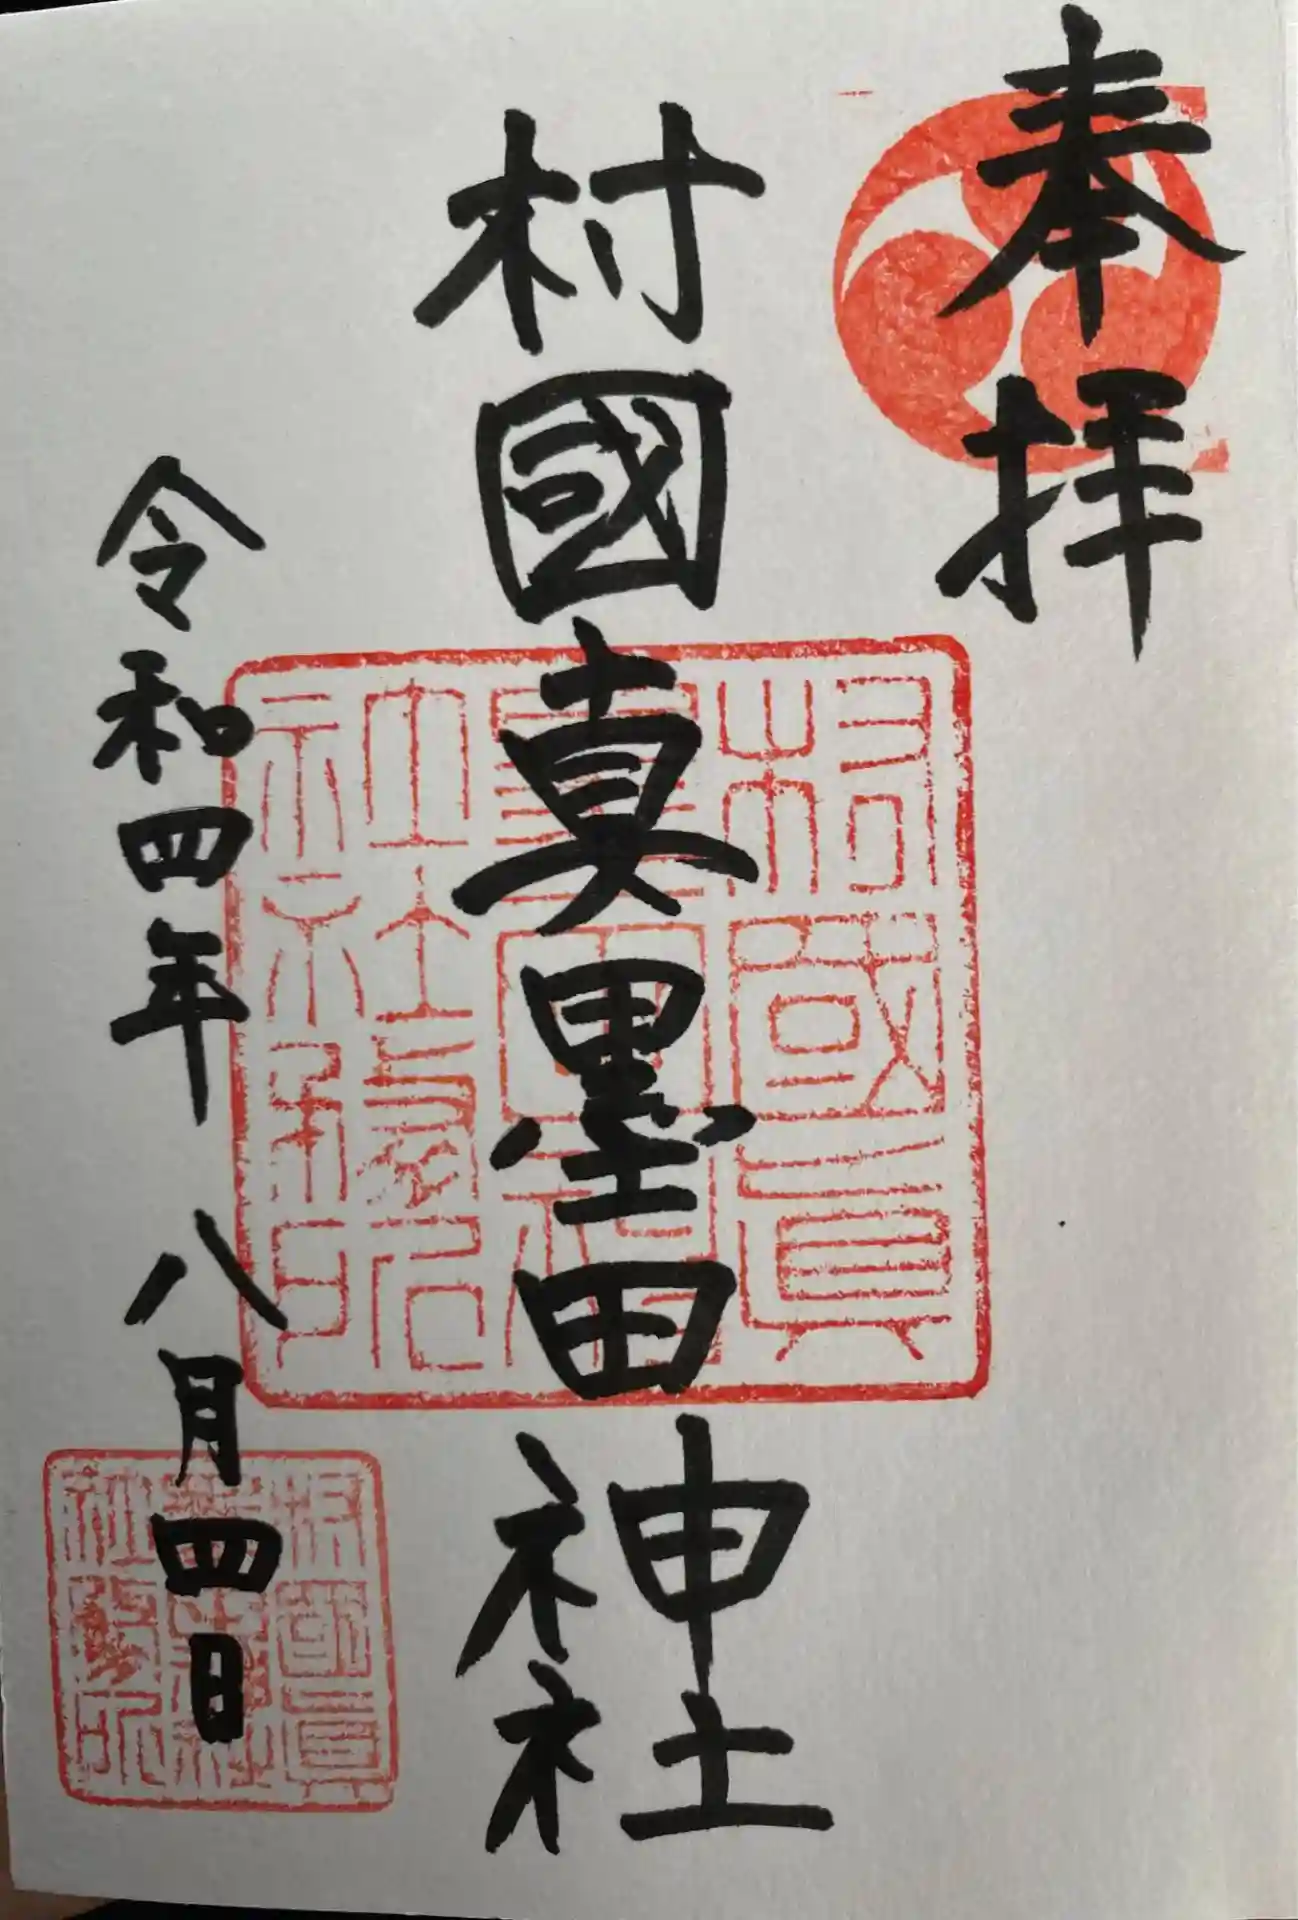 奉拝
村國真墨田神社
令和四年 八月四日